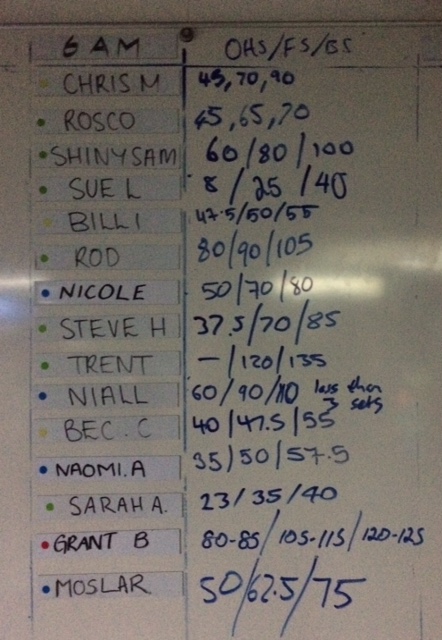 6 AM OHS/FS/BS
CHRIS M 45,70,90
ROSCO 45,65,70
SHINYSAM 60/80/100
SUE L 8/25/40
BILLI 47.5/50/55
ROD 80/90/105
NICOLE 50/70/80
STEVE H 37.5/70/85
TRENT —/120/135
NIALL 60/90/110 less than 3 sets
BEC. C 40/47.5/55
NAOMI.A 35/50/57.5
SARAH A. 23/35/40
GRANT B 80-85/105-115/120-125
MOSLAR 50/62.5/75